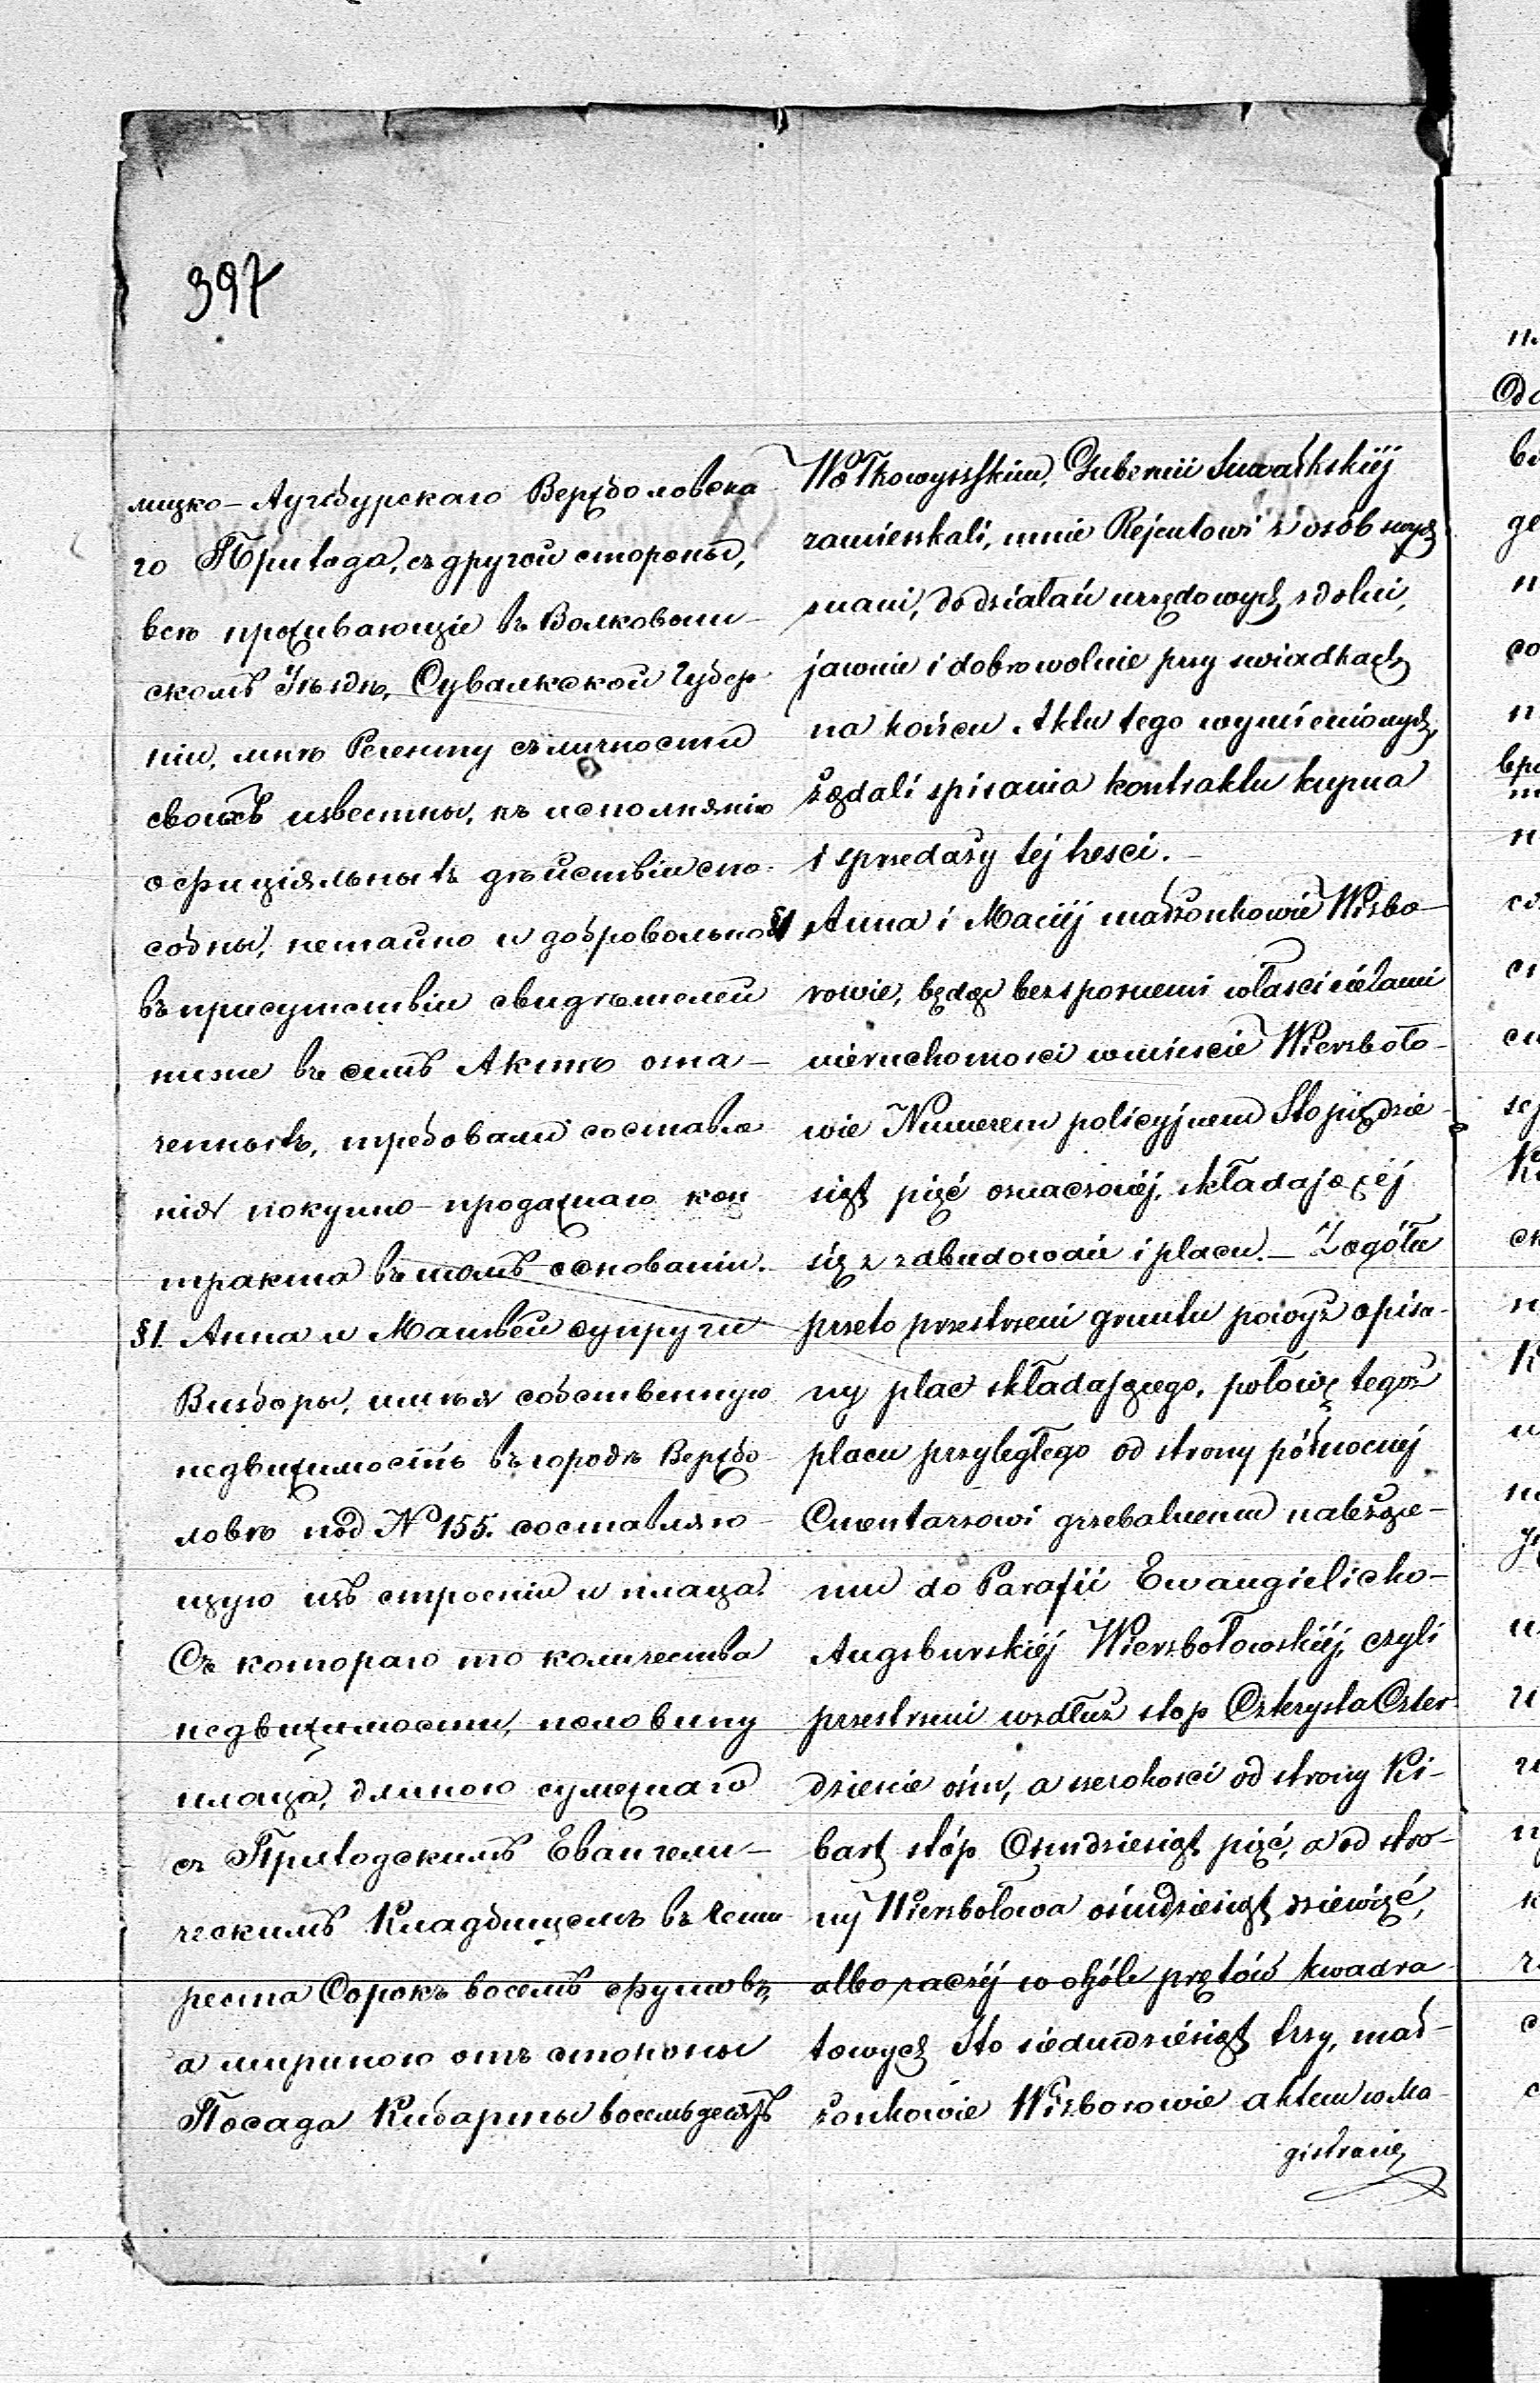 397
лицко-Аугсбурскаго Вержболовска
го Прихода, съ другой стороны,
всѣ проживающіе въ Волковыш-
скомъ Уѣздѣ, Сувалкской Губер
ніи, мнѣ Регенту съ личности
своихъ извѣстны, къ исполненію
офиціяльныхъ дѣйствій спо-
собны, нетайно и добровольно
въ присутствіи свидѣтелей
ниже въ семъ Актѣ озна-
ченныхъ, требовали составле
нія покупно-продажнаго кон
тракта въ томъ основаніи.
§1. Анна и Матвѣй супруги
Визборы, имѣя собственную
недвижимость въ городѣ Вержбо
ловѣ под № 155. составляю-
щую изъ строеній и плаца.
Съ котораго то количества
недвижимости, половину
плаца, длиною сумежнаго
съ Приходскимъ Евангели-
ческимъ Кладбищемъ въ Четы
реста Сорокъ восемъ футовъ,
а шириною отъ стороны
Посада Кибарты восемьдесятъ
Wołkowyszskim, Gubernii Suwałkskiéj
zamieszkali, mnie Rejentowi z osób swych
znani, do działań urzędowych zdolni,
jawnie i dobrowolnie przy swiadkach
na końcu Aktu tego wymienionych,
żądali spisania kontraktu kupna
i sprzedaży tej tresci.-
§1 Anna i Maciéj małżonkowie Wizbo-
rowie, będąc bezspornemi własscicielami
nieruchomosci w mieście Wierzboło-
wie Numerem policyjnem Sto pięćdzie-
siąt pięć oznaczonéj, składającéj
się z zabudowań i placu.- Z ogółu
przeto przestrzeni gruntu powyż opisa-
ny plac składającego, połowę tegoż
placu przyległego od strony północnéj
Cmentarzowi grzebalnemu należące-
mu do Parafii Ewangielicko-
Augsburskiéj Wierzbołowskiéj, czyli
przestrzeni wzdłuż stop Czterysta Czter
dziescie ośm, a szerokosci od strony Ki-
bart stóp Osmdziesiąt pięć, a od stro-
ny Wierzbołowa ośmdziesiąt dziewięć,
albo raczéj w ogóle prętów kwadra
towych Sto siedmdziesiąt trzy, mał-
żonkowie Wizborowie aktem w Ma-
gistracie